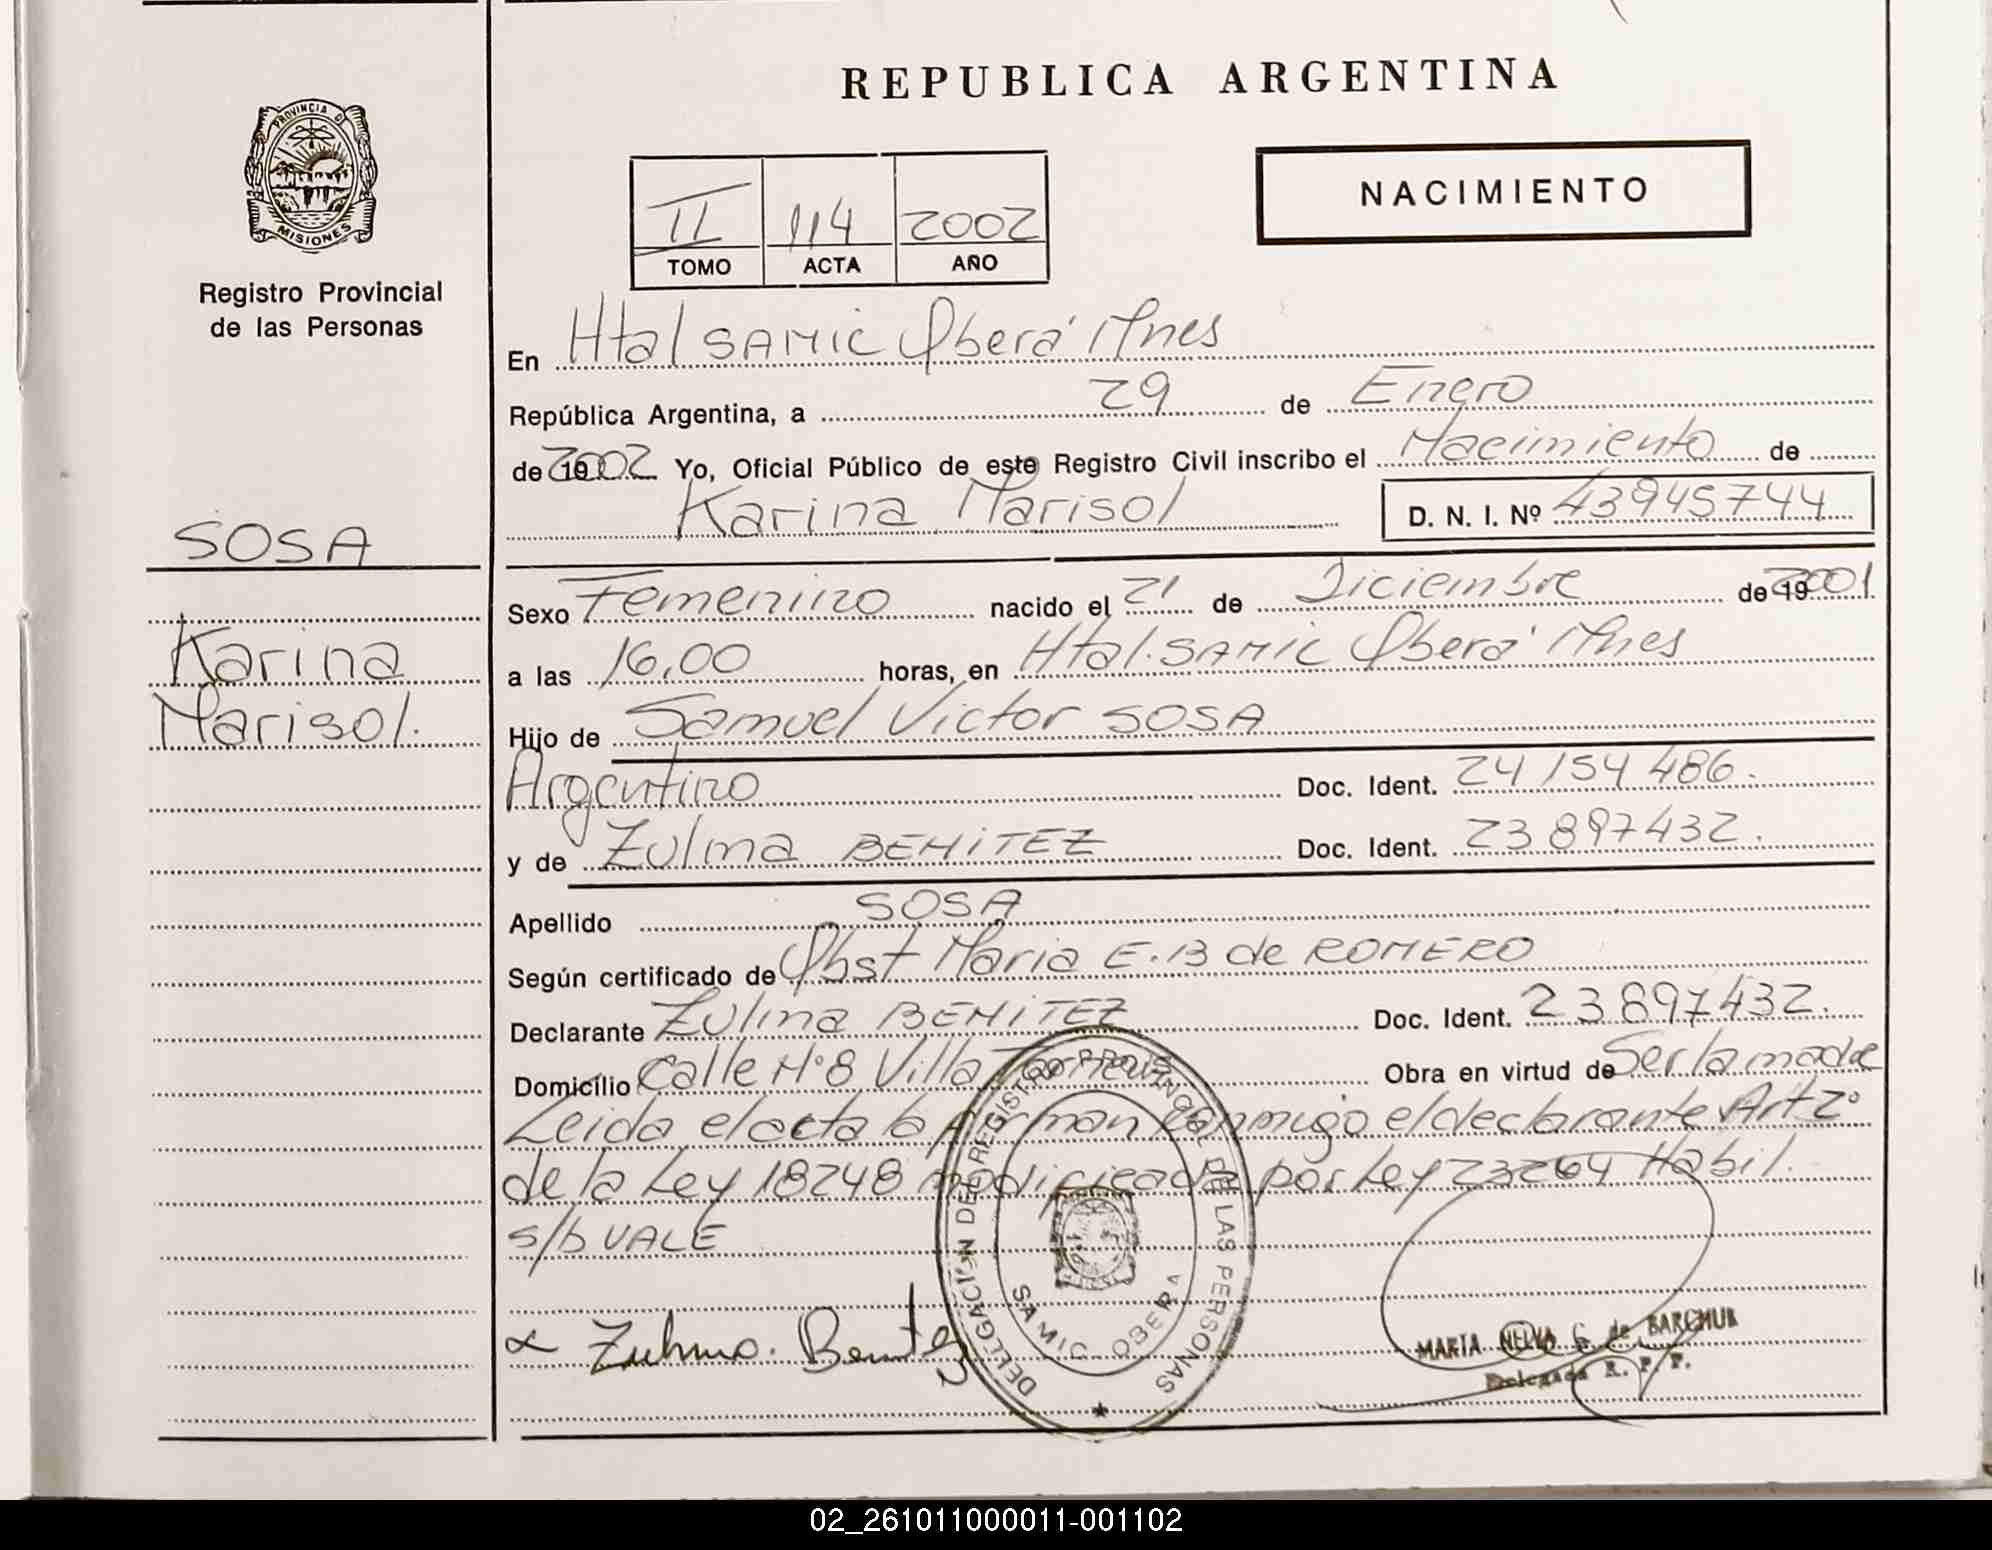 REPUBLICA ARGENTINA
PROVINCIA D
MISIONES
Registro Provincial
de las Personas
II 114 2002
TOMO ACTA AÑO
NACIMIENTO
En Htal SAMIC Oberá Mnes
República Argentina, a 29 de Enero
de 2002 Yo, Oficial Público de este Registro Civil inscribo el Nacimiento de
Karina Marisol D. N. I. Nº 43945744
SOSA
Karina
Marisol.
Sexo Femenino nacido el 21 de Diciembre de 2001
a las 16,00 horas, en Htal. SAMIC Oberá Mnes
Hijo de Samuel Victor SOSA
Argentino Doc. Ident. 24154486.
y de Zulma BENITEZ Doc. Ident. 23897432.
Apellido SOSA
Según certificado de Obst Maria E.B de ROMERO
Declarante Zulma BENITEZ Doc. Ident. 23897432.
Domicilio Calle Nº8 Villa Obra en virtud de Ser la madre
Leida el acta la firman conmigo el declarante Art 2º
de la Ley 18248 modificada por Ley 23264 Habil.
s/b VALE
Zulma. Benitez
DELEGACIÓN DEL REGISTRO PROVINCIAL DE LAS PERSONAS
SAMIC OBERA
MARIA NELVA G. de BARCHUK
Delegada R. P. P.
02_261011000011-001102